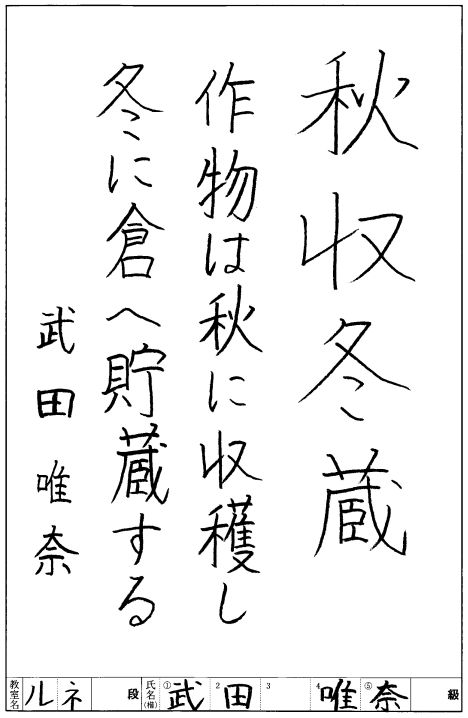 秋収冬蔵
作物は秋に収穫し
冬に倉へ貯蔵する
武田唯奈
教室名 ルネ 段 氏名(楷) ①武 2田 3 4唯 ⑤奈 級